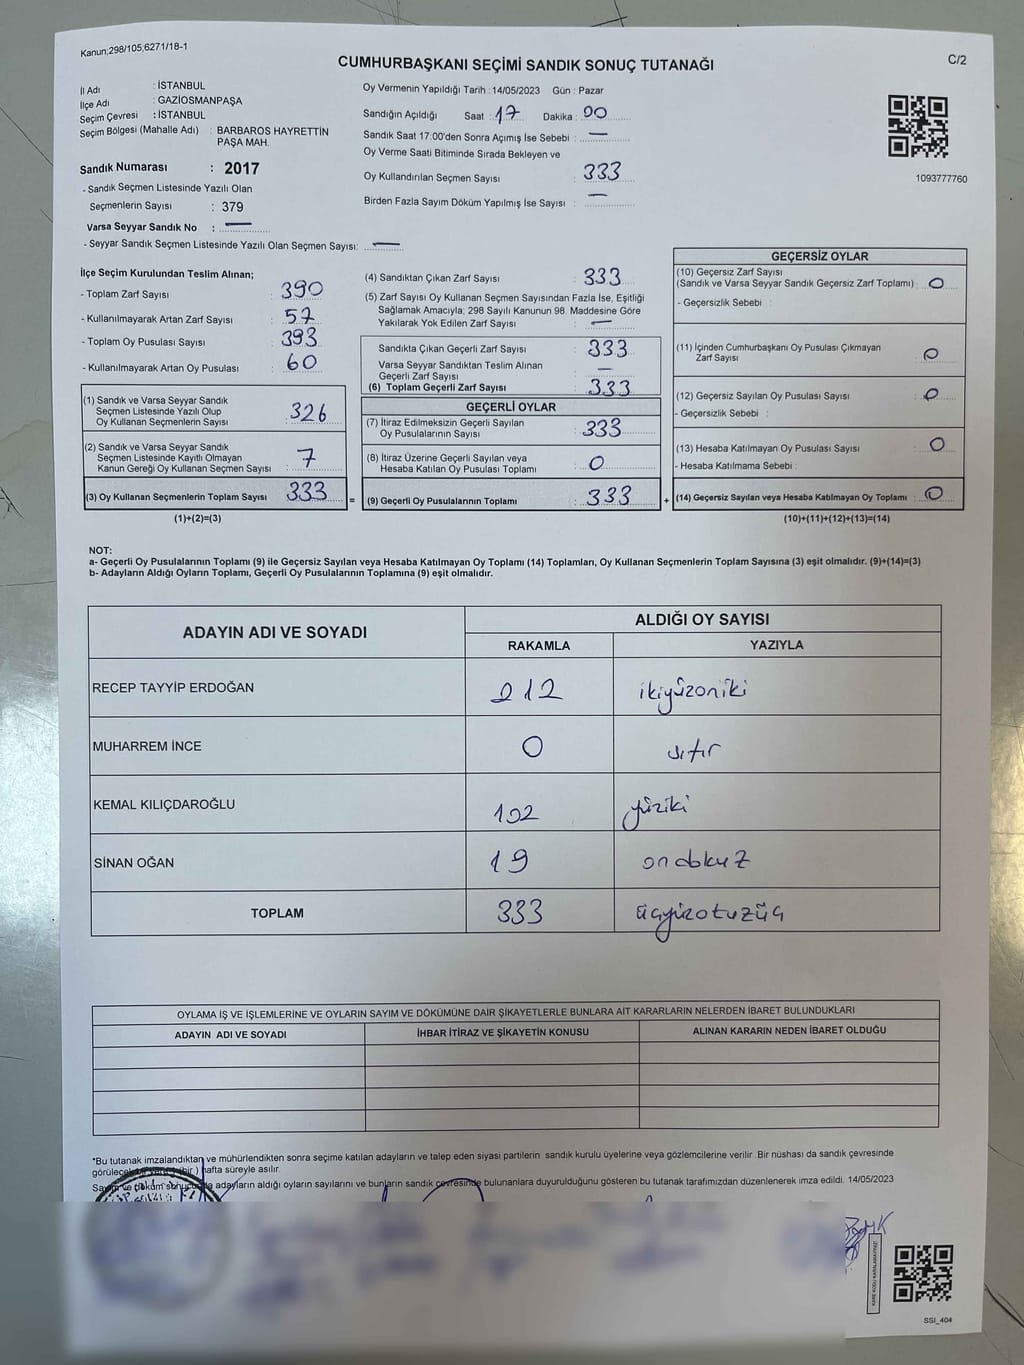 Kanun,298/105,6271/18-1
CUMHURBAŞKANI SEÇİMİ SANDIK SONUÇ TUTANAĞI
C/2
İl Adı : İSTANBUL
İlçe Adı : GAZİOSMANPAŞA
Seçim Çevresi : İSTANBUL
Seçim Bölgesi (Mahalle Adı) : BARBAROS HAYRETTİN
PAŞA MAH.
Sandık Numarası : 2017
- Sandık Seçmen Listesinde Yazılı Olan
Seçmenlerin Sayısı : 379
Varsa Seyyar Sandık No : —
- Seyyar Sandık Seçmen Listesinde Yazılı Olan Seçmen Sayısı: —
Oy Vermenin Yapıldığı Tarih : 14/05/2023 Gün : Pazar
Sandığın Açıldığı Saat : 17 Dakika : 00
Sandık Saat 17:00'den Sonra Açımış İse Sebebi : —
Oy Verme Saati Bitiminde Sırada Bekleyen ve
Oy Kullandırılan Seçmen Sayısı : 333
Birden Fazla Sayım Döküm Yapılmış İse Sayısı : —
1093777760
İlçe Seçim Kurulundan Teslim Alınan;
- Toplam Zarf Sayısı : 390
- Kullanılmayarak Artan Zarf Sayısı : 57
- Toplam Oy Pusulası Sayısı : 393
- Kullanılmayarak Artan Oy Pusulası : 60
(1) Sandık ve Varsa Seyyar Sandık
Seçmen Listesinde Yazılı Olup
Oy Kullanan Seçmenlerin Sayısı : 326
(2) Sandık ve Varsa Seyyar Sandık
Seçmen Listesinde Kayıtlı Olmayan
Kanun Gereği Oy Kullanan Seçmen Sayısı : 7
(3) Oy Kullanan Seçmenlerin Toplam Sayısı : 333 =
(1)+(2)=(3)
(4) Sandıktan Çıkan Zarf Sayısı : 333
(5) Zarf Sayısı Oy Kullanan Seçmen Sayısından Fazla İse, Eşitliği
Sağlamak Amacıyla, 298 Sayılı Kanunun 98. Maddesine Göre
Yakılarak Yok Edilen Zarf Sayısı : —
Sandıkta Çıkan Geçerli Zarf Sayısı : 333
Varsa Seyyar Sandıktan Teslim Alınan
Geçerli Zarf Sayısı : —
(6) Toplam Geçerli Zarf Sayısı : 333
GEÇERLİ OYLAR
(7) İtiraz Edilmeksizin Geçerli Sayılan
Oy Pusulalarının Sayısı : 333
(8) İtiraz Üzerine Geçerli Sayılan veya
Hesaba Katılan Oy Pusulası Toplamı : 0
(9) Geçerli Oy Pusulalarının Toplamı : 333 +
GEÇERSİZ OYLAR
(10) Geçersiz Zarf Sayısı
(Sandık ve Varsa Seyyar Sandık Geçersiz Zarf Toplamı) : 0
- Geçersizlik Sebebi :
(11) İçinden Cumhurbaşkanı Oy Pusulası Çıkmayan
Zarf Sayısı : 0
(12) Geçersiz Sayılan Oy Pusulası Sayısı : 0
- Geçersizlik Sebebi :
(13) Hesaba Katılmayan Oy Pusulası Sayısı : 0
- Hesaba Katılmama Sebebi :
(14) Geçersiz Sayılan veya Hesaba Katılmayan Oy Toplamı : 0
(10)+(11)+(12)+(13)=(14)
NOT:
a- Geçerli Oy Pusulalarının Toplamı (9) ile Geçersiz Sayılan veya Hesaba Katılmayan Oy Toplamı (14) Toplamları, Oy Kullanan Seçmenlerin Toplam Sayısına (3) eşit olmalıdır. (9)+(14)=(3)
b- Adayların Aldığı Oyların Toplamı, Geçerli Oy Pusulalarının Toplamına (9) eşit olmalıdır.
ADAYIN ADI VE SOYADI
ALDIĞI OY SAYISI
RAKAMLA YAZIYLA
RECEP TAYYİP ERDOĞAN 212 ikiyüzoniki
MUHARREM İNCE 0 sıfır
KEMAL KILIÇDAROĞLU 102 yüziki
SİNAN OĞAN 19 ondokuz
TOPLAM 333 üçyüzotuzüç
OYLAMA İŞ VE İŞLEMLERİNE VE OYLARIN SAYIM VE DÖKÜMÜNE DAİR ŞİKAYETLERLE BUNLARA AİT KARARLARIN NELERDEN İBARET BULUNDUKLARI
ADAYIN ADI VE SOYADI İHBAR İTİRAZ VE ŞİKAYETİN KONUSU ALINAN KARARIN NEDEN İBARET OLDUĞU
*Bu tutanak imzalandıktan ve mühürlendikten sonra seçime katılan adayların ve talep eden siyasi partilerin sandık kurulu üyelerine veya gözlemcilerine verilir. Bir nüshası da sandık çevresinde
hafta süreyle asılır.
adayların aldığı oyların sayılarını ve bunların sandık çevresinde bulunanlara duyurulduğunu gösteren bu tutanak tarafımızdan düzenlenerek imza edildi. 14/05/2023
KARE KODU KARALAMAYINIZ!
SSI_404